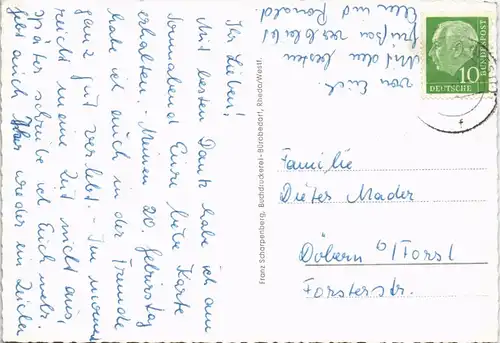 Ihr Lieben!
Mit besten Dank habe ich am
Sonnabend Eure liebe Karte
erhalten. Meinen 20. Geburtstag
habe ich auch in der Fremde
ganz gut verlebt. - Im moment
reicht meine Zeit nicht aus,
später schreibe ich Euch mehr.
auch wieder ein Zeichen
von Euch
Mit den besten
Grüßen verbleibt
Ellen und Ronald.
Franz Scharpenberg, Buchdruckerei-Bürobedarf, Rheda/Westf.
10
DEUTSCHE
BUNDESPOST
Familie
Dieter Mader
Döbern b/Forst
Forsterstr.